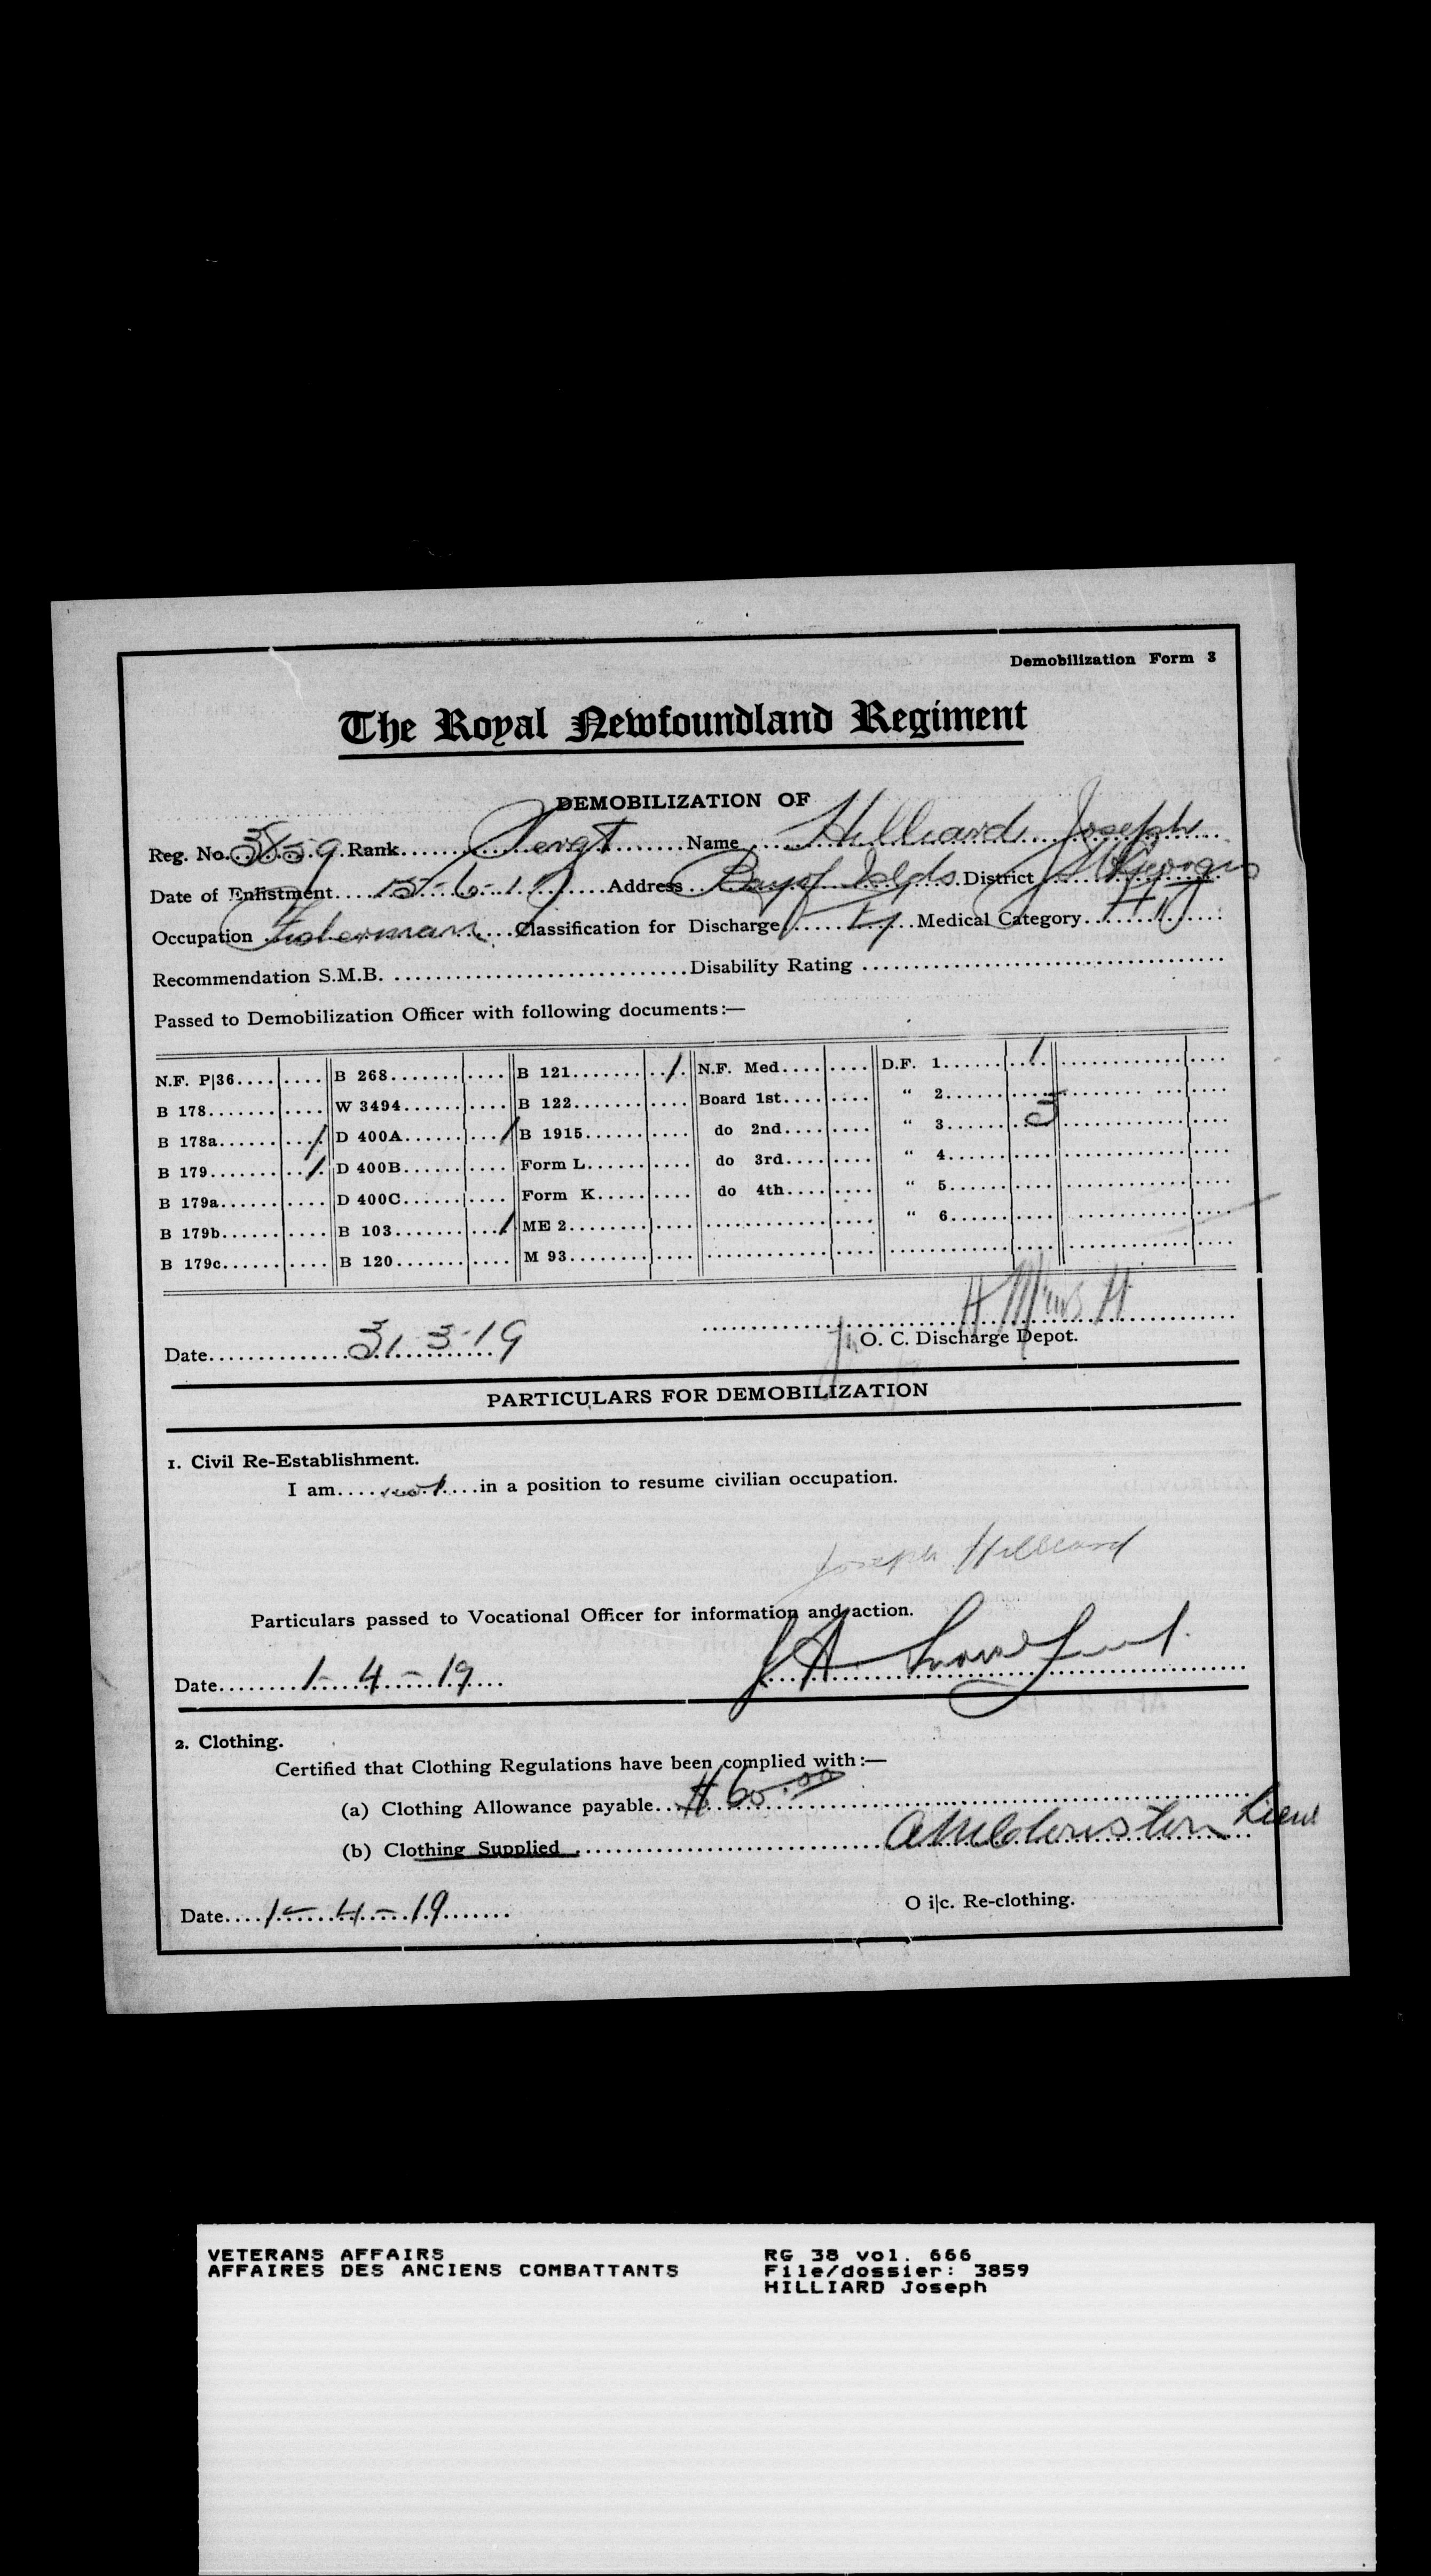 Demobilization Form 3
The Royal Newfoundland Regiment
DEMOBILIZATION OF
Reg. No. 3859 Rank Sergt Name Hilliard Joseph
Date of Enlistment 15-6-17 Address Bay of Islds District St Georges
Occupation Fisherman Classification for Discharge Medical Category
Recommendation S.M.B. Disability Rating
Passed to Demobilization Officer with following documents:—
N.F. P|36 B 268 B 121 / N.F. Med. D.F. 1 /
B 178 W 3494 B 122 Board 1st " 2
B 178a / D 400A / B 1915 do 2nd " 3 3
B 179 / D 400B Form L do 3rd " 4
B 179a D 400C Form K do 4th " 5
B 179b B 103 / ME 2 " 6
B 179c B 120 M 93
Date 31-3-19 O. C. Discharge Depot.
PARTICULARS FOR DEMOBILIZATION
1. Civil Re-Establishment.
I am not in a position to resume civilian occupation.
Joseph Hilliard
Particulars passed to Vocational Officer for information and action.
Date 1-4-19
2. Clothing.
Certified that Clothing Regulations have been complied with:—
(a) Clothing Allowance payable $60.00
(b) Clothing Supplied Lieut
Date 1-4-19 O i|c. Re-clothing.
VETERANS AFFAIRS RG 38 vol. 666
AFFAIRES DES ANCIENS COMBATTANTS File/dossier: 3859
HILLIARD Joseph